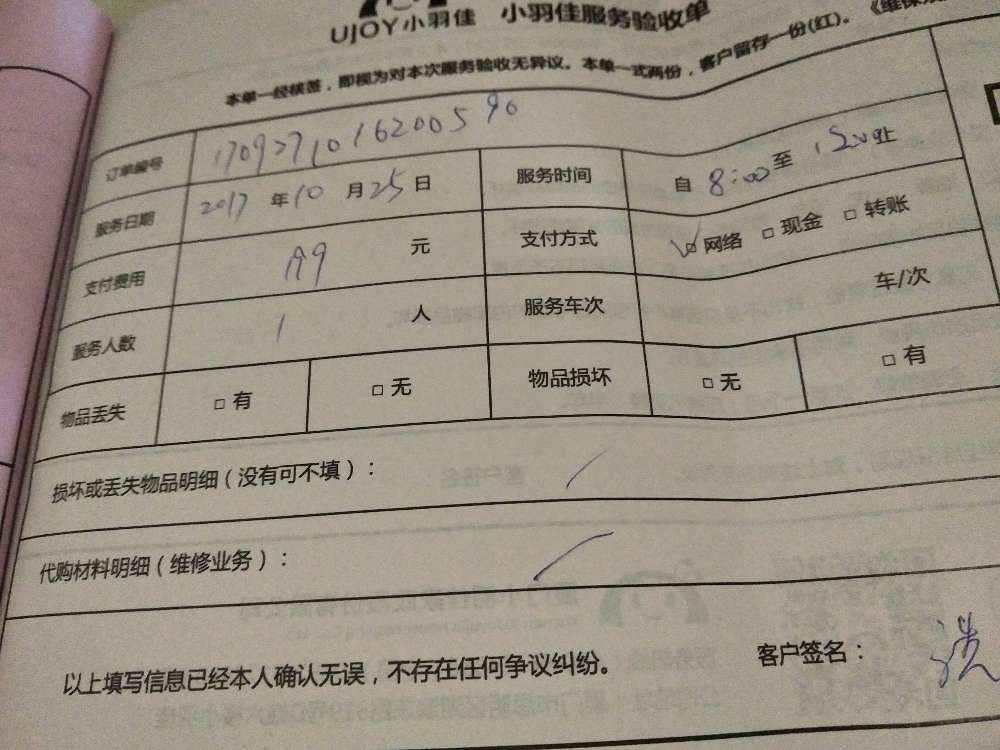 UJOY小羽佳 小羽佳服务验收单
本单一经核签，即视为对本次服务验收无异议。本单一式两份，客户留存一份(红)。《维保
订单编号 170927101620059
服务日期 2017 年 10 月 25 日 服务时间 自 8:00 至 12:00 止
支付费用 元 支付方式 □ 网络 □ 现金 □ 转账
服务人数 1 人 服务车次 车/次
物品丢失 □ 有 □ 无 物品损坏 □ 无 □ 有
损坏或丢失物品明细（没有可不填）： /
代购材料明细（维修业务）： /
以上填写信息已经本人确认无误，不存在任何争议纠纷。 客户签名：